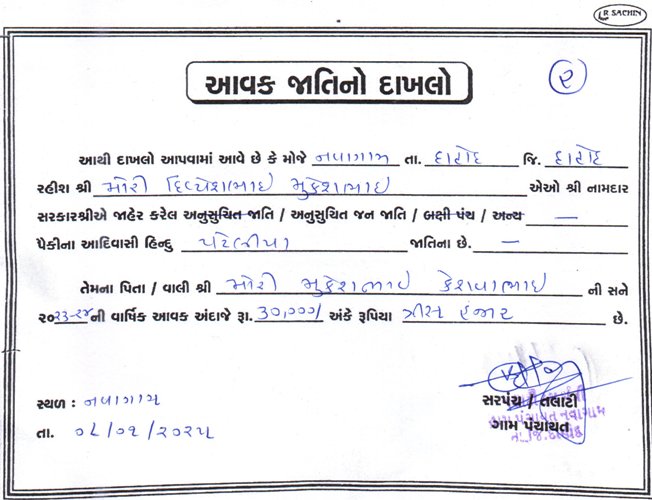 R SACHIN
આવક જાતિનો દાખલો
૨
આથી દાખલો આપવામાં આવે છે કે મોજે નવાગામ તા. દાહોદ જિ. દાહોદ
રહીશ શ્રી મોરી દિવ્યેશભાઇ મુકેશભાઇ એઓ શ્રી નામદાર
સરકારશ્રીએ જાહેર કરેલ અનુસુચિત જાતિ / અનુસુચિત જન જાતિ / બક્ષી પંચ / અન્ય —
પૈકીના આદિવાસી હિન્દુ પટેલીયા જાતિના છે. —
તેમના પિતા / વાલી શ્રી મોરી મુકેશભાઇ કેશવાભાઇ ની સને
૨૦૨૩-૨૪ની વાર્ષિક આવક અંદાજે રૂા. ૩૦,૦૦૦/ અંકે રૂપિયા ત્રીસ હજાર છે.
સરપંચ / તલાટી
સ્થળ : નવાગામ
ગ્રામ પંચાયત નવાગામ
ગામ પંચાયત
તા. /૦૧/૨૦૨૫